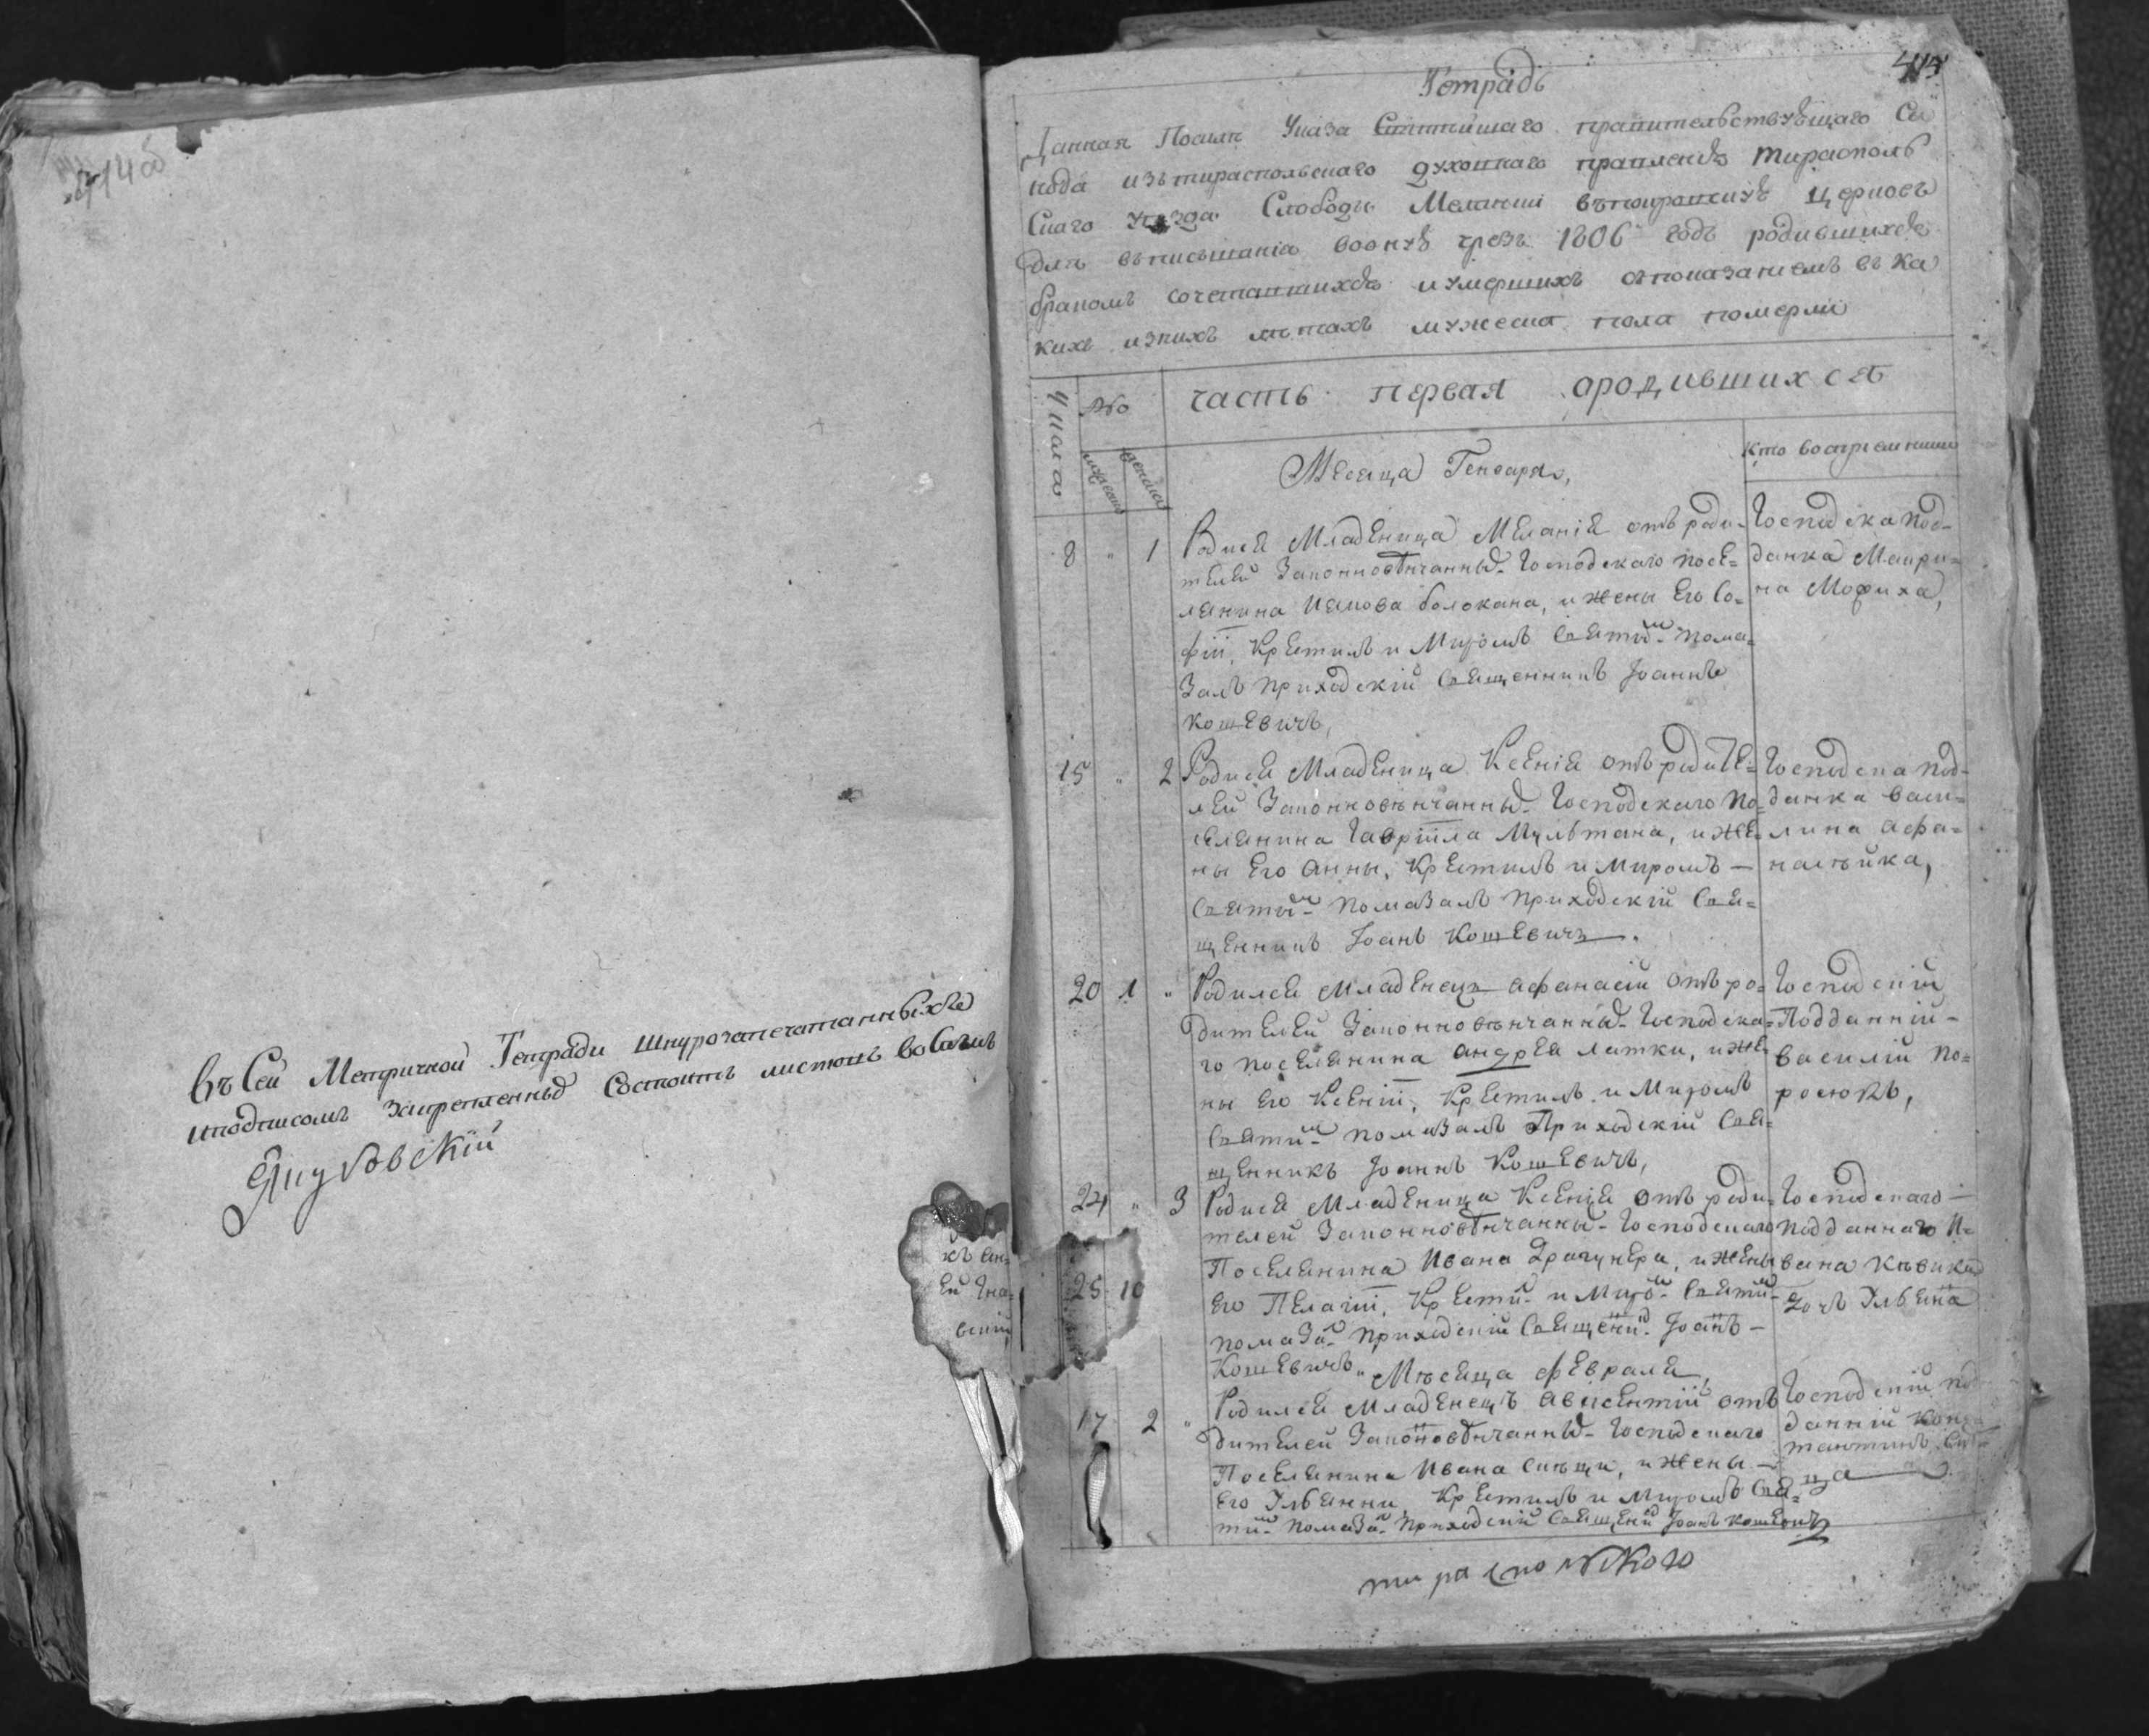 714 об
Въ Сей Метричной Тетради шнурозапечатанныхъ
и подписомъ закрепленныхъ Состоитъ листовъ восемь
Якубовскій
Тетрадь
Данная По силе Указа Святейшаго правительствующаго Си
нода изъ тираспольскаго духовнаго правления тирасполь
скаго уезда Слободы Маланши въ покровскую церковь
для вписывания во оную чрезъ 1806 годъ родившихся
бракомъ сочетавшихся и умершихъ съ показаниемъ въ ка
кихъ изнихъ летахъ мужеска пола померли
Числа
часть первая о родившихся
Месяца Генваря,
кто восприемники
8 " 1 Родися Младеница Меланія отъ роди-
телей Законновѣнчанны- Господскаго посе=
лянина Иакова болокана, и жены Его Со=
фіи, Крестилъ и Миромъ Святы- пома=
залъ приходскій Священникъ Іоаннъ
кошевичъ,
Господска под-
данка Маври=
на Мофиха,
15 " 2 Родися Младеница Ксенія отъ родите=
лей Законновѣнчанны- Господскаго по-
селянина Гавріила Мультана, и же=
ны Его Анны, Крестилъ и миромъ —
Святы- помазалъ приходскій Свя=
щенникъ Іоанъ Кошевичъ.
Господска под-
данка васи=
лина афа=
насѣйка,
20 1 " Родился Младенецъ афанасій отъ ро=
дителей Законновѣнчанны- Господска=
го поселянина андрея латки, и же
ны Его Ксеніи, Крестилъ и Миромъ
Святы- помазалъ Приходскій Свя=
щенникъ Іоаннъ Кошевичъ,
Господскій
Подданній-
василій по=
росюкъ,
24 " 3 Родися Младеница Ксенія отъ роди=
телей Законновѣнчанны- Господскаго
Поселянина Ивана Драгунера, и жены
Его Пелагіи, Крести- и Миро- Святы-
помаза- приходскій Священи- Іоанъ-
Кошевичъ.
Господскаго —
подданнаго И=
вана
дочь Ульяна
25 10
Мѣсяца февраля,
17 2 " Родился младенецъ авксентій отъ
дителей Законовѣнчанны- Господскаго
Поселянина Ивана сивци, и жены —
Его Ульянни, Крестилъ и Миромъ Свя=
ты- помаза- приходскій Священи Іоанъ кошевичъ
Господскій по
данній конс
тантинъ
ца
тираспольского